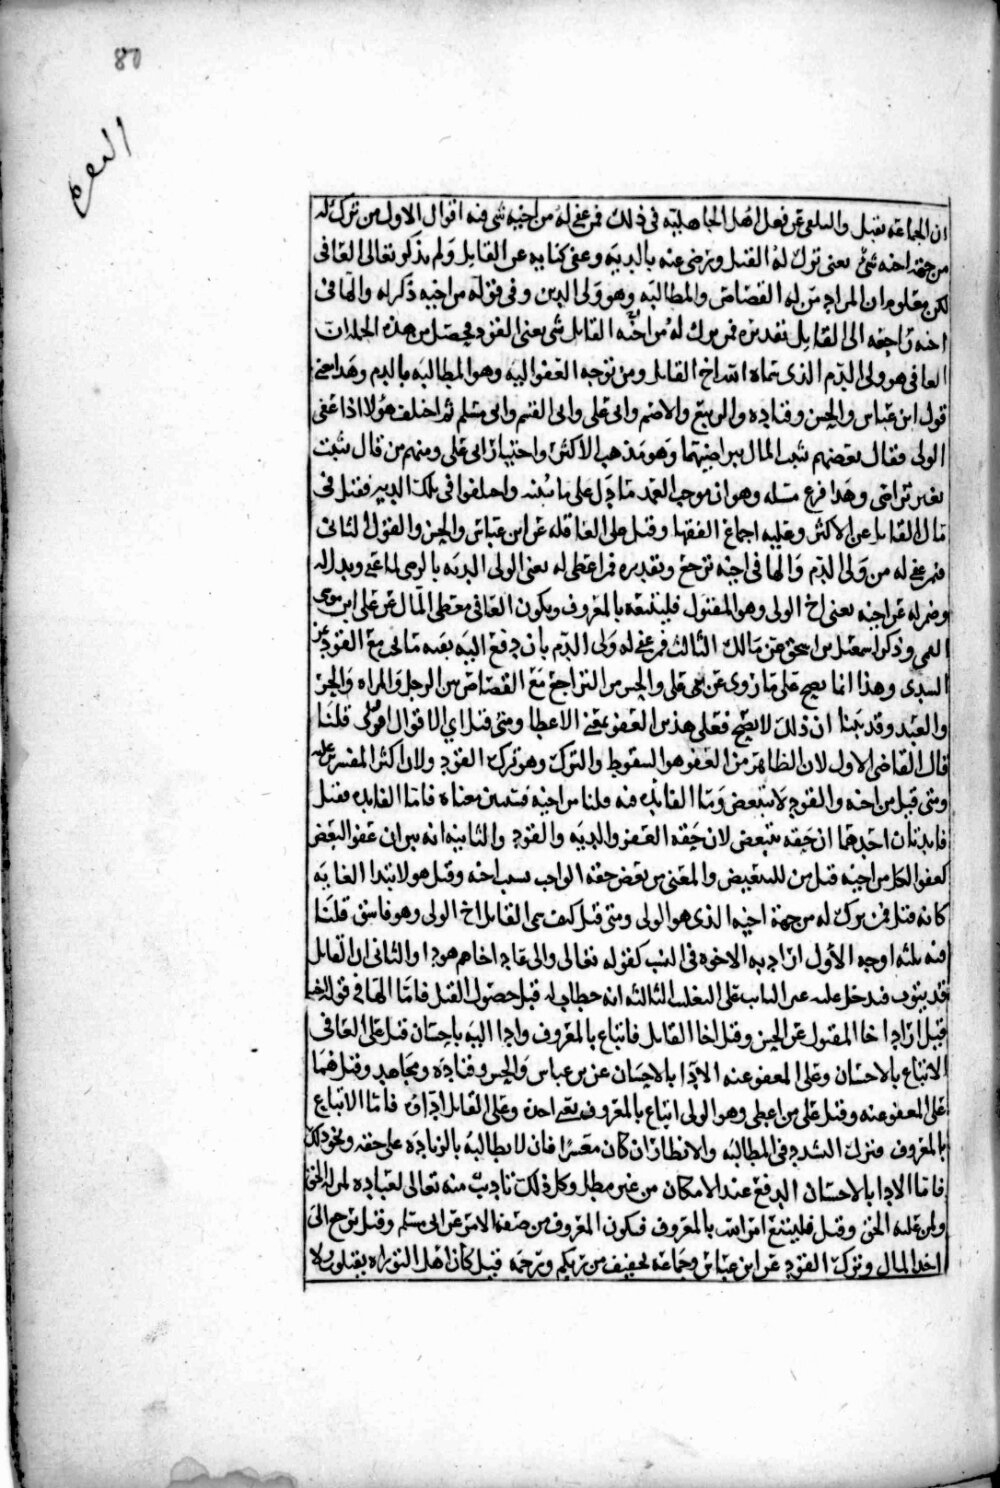 80
البقرة
ان الجماعه تقتل والتلقى عن فعل اهل الجاهلية فى ذلك فمن عفى له من اخيه شى فيه اقوال الاول من ترك له
من جهة اخيه شئ يعنى ترك له القتل ورضى عنه بالدية وعفى كنايه عن القاتل ولم يذكر تعالى العافى
لكن معلوم ان المراد من له القصاص والمطالبه وهو ولى الدين وفى قوله من اخيه ذكراه والها فى
اخيه راجعه الى القاتل تقديره فمن ترك له من اخيه القاتل شى يعنى القود فيحصل من هذه الجملة ان
العافى هو ولى الدم الذى سماه الله اخ القاتل ومن توجه العفو اليه وهو المطالبه بالدم وهذا معنى
قول ابن عباس والحسن وقتاده والربيع والاصم وابى على وابى القسم وابى مسلم ثم اختلف هولا اذا عفى
الولى فقال بعضهم يثبت المال بتراضيهما وهو مذهب الاكثر واختيار ابى على ومنهم من قال يثبت
بغير تراضى وهذا فرع مسله وهو ان موجب العمد ماذا على ما نبينه واختلفوا فى تلك الديه فقيل فى
مال القاتل عن الاكثر وعليه اجماع الفقها وقيل على العاقله عن ابن عباس والحسن والقول الثانى
فمن عفى له من ولى الدم والها فى اخيه ترجع وتقديره فمن اعطى له يعنى الولى الديه بالوحى لما عفى وبدل له
وضمر له عن اخيه يعنى اخ الولى وهو المقتول فليتبعه بالمعروف ويكون العافى معطى المال عن على ابن موسى
القمى وذكر اسمعيل بن اسحق عن مالك الثالث فمن عفى له ولى الدم بان دفع اليه بقيه مالى مع القود عن
السدى وهذا انما يصح على ما روى عن على والحسن من التراجع مع القصاص بين الرجل والمراه والحر
والعبد وقد بينا ان ذلك لا يصح فعلى هذين العفو بمعنى الاعطا ومتى قيل اي الاقوال اقوى قلنا
قال القاضى الاول لان الظاهر من العفو هو السقوط والترك وهو ترك القود ولان اكثر المفسرين عليه
ومتى قيل من اخيه والقود لا يتبعض وما الفايده فيه قلنا من اخيه قد تبين معناه فاما الفايده فقيل
فايدتان احدهما ان حقه يتبعض لان حقه العفو والديه والقود والثانيه انه بين ان عفو البعض
كعفو الكل من اخيه قيل من للتبعيض والمعنى من بعض حقه الواجب بسبب اخيه وقيل هو لابتدا الغايه
كانه قيل فمن ترك له من جهة اخيه الذى هو الولى ومتى قيل كيف سمى القاتل اخ الولى وهو فاسق قلنا
فيه ثلثه اوجه الأول اراد به الاخوه فى النسب كقوله تعالى والى عاد اخاهم هودا والثانى ان القاتل
قد يتوب فيدخل عليه غير التايب على التغليب الثالثه انه خطاب له قبل حصول القتل فاما الها فى قوله اخيه
قيل اراد اخا المقتول عن الحسن وقيل اخا القاتل فاتباع بالمعروف واداء اليه باحسان قيل على العافى
الاتباع بالاحسان وعلى المعفو عنه الادا بالاحسان عن بن عباس والحسن وقتاده ومجاهد وقيل هما
على المعفو عنه وقيل على من اعطى وهو الولى اتباع بالمعروف بغير احد وعلى القاتل اداء فاما الاتباع
بالمعروف فترك التشدد فى المطالبه والانظار ان كان معسرا فان لا يطالبه بالزياده على حقه ونحو ذلك
فاما الادا بالاحسان الدفع عند الامكان من غير مطل وكل ذلك تاديب منه تعالى لعباده لمن له الحق
ولمن عليه الحق وقيل فليتبع امر الله بالمعروف فيكون المعروف من صفه الامر عن ابى مسلم وقيل ترجع الى
اخذ المال وترك القود عن ابن عباس وجماعه تخفيف من ربكم ورحمه قيل كان اهل التوراه يقتلون ولا